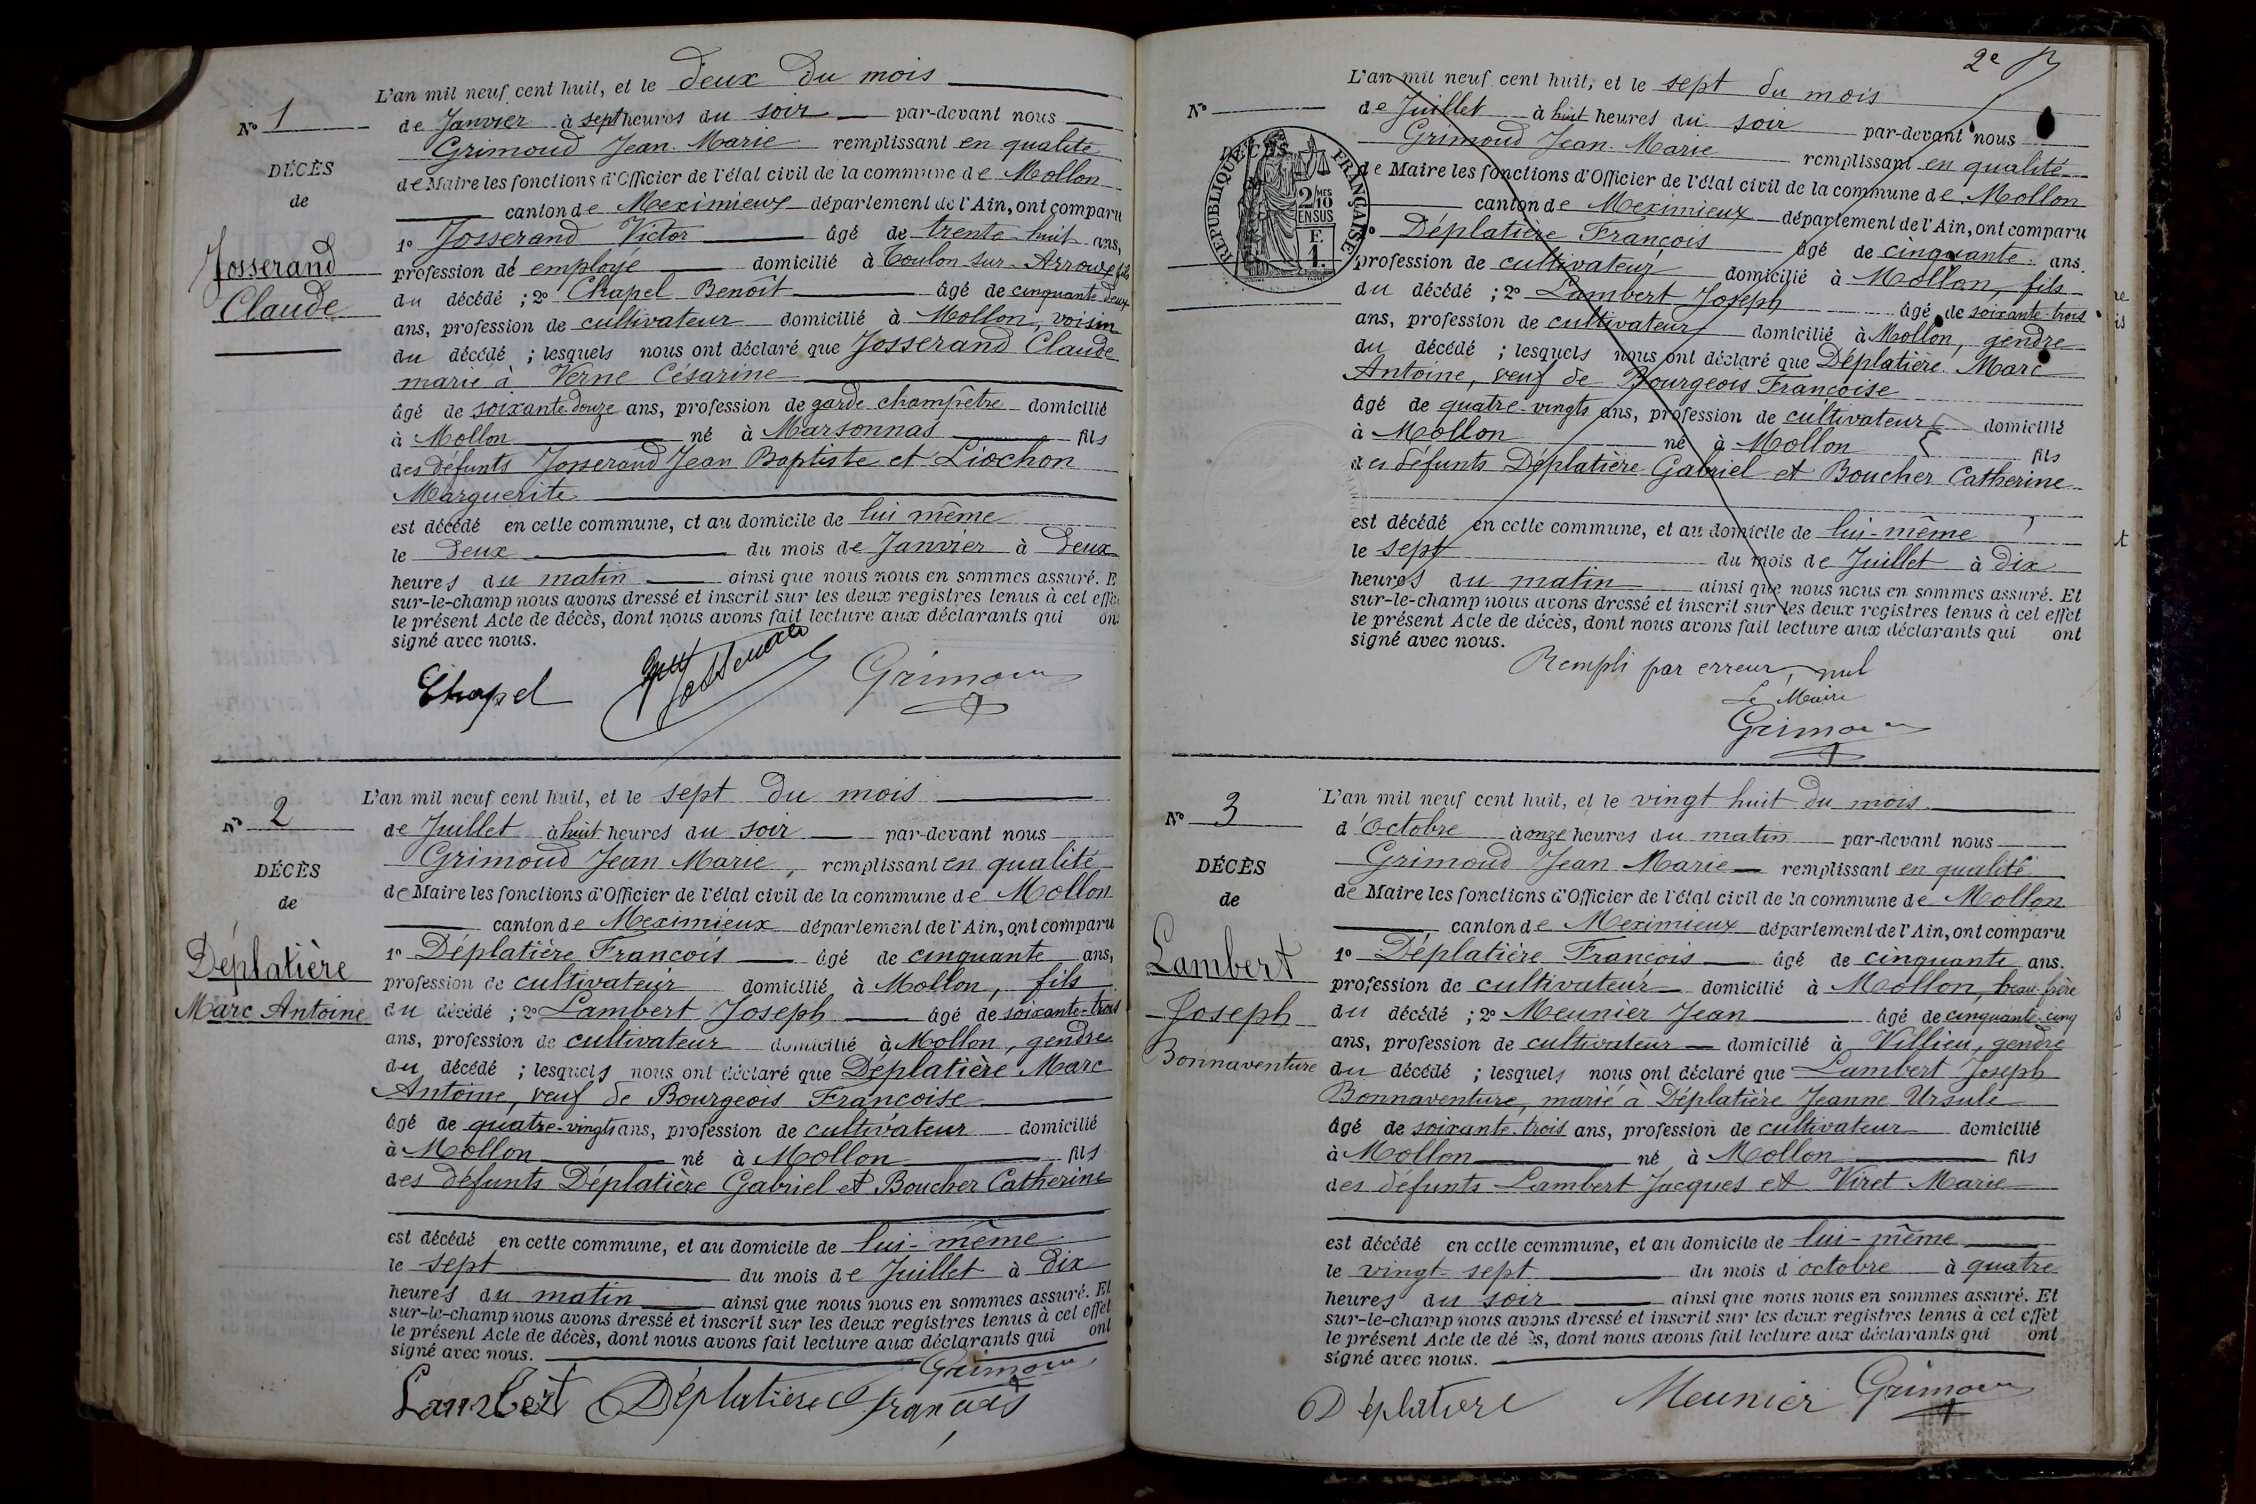 L'an mil neuf cent huit, et le deux du mois
N° 1
de Janvier à sept heures du soir par-devant nous
Grimoud Jean Marie remplissant en qualité
DÉCÈS
de Maire les fonctions d'Officier de l'état civil de la commune de Mollon
de
canton de Meximieux département de l'Ain, ont comparu
1° Josserand Victor âgé de trente-huit ans,
Josserand
profession de employé domicilié à Toulon-sur-Arroux, fils
Claude
du décédé ; 2° Chapel Benoit âgé de cinquante deux
ans, profession de cultivateur domicilié à Mollon, voisin
du décédé ; lesquels nous ont déclaré que Josserand Claude
marié à Verne Césarine
âgé de soixante douze ans, profession de garde champêtre domicilié
à Mollon né à Marsonnas fils
des défunts Josserand Jean Baptiste et Liochon
Marguerite
est décédé en cette commune, et au domicile de lui même
le deux du mois de Janvier à deux
heures du matin ainsi que nous nous en sommes assuré. E
sur-le-champ nous avons dressé et inscrit sur les deux registres tenus à cet effe
le présent Acte de décès, dont nous avons fait lecture aux déclarants qui on
signé avec nous.
Chapel Josserand Grimoud
L'an mil neuf cent huit, et le sept du mois
N° 2
de Juillet à huit heures du soir par-devant nous
Grimoud Jean Marie, remplissant en qualité
DÉCÈS
de Maire les fonctions d'Officier de l'état civil de la commune de Mollon
de
canton de Meximieux département de l'Ain, ont comparu
1° Déplatière François âgé de cinquante ans,
Déplatière
profession de cultivateur domicilié à Mollon, fils
Marc Antoine
du décédé ; 2° Lambert Joseph âgé de soixante-trois
ans, profession de cultivateur domicilié à Mollon, gendre
du décédé ; lesquels nous ont déclaré que Déplatière Marc
Antoine, veuf de Bourgeois Françoise
âgé de quatre-vingts ans, profession de cultivateur domicilié
à Mollon né à Mollon fils
des défunts Déplatière Gabriel et Boucher Catherine
est décédé en cette commune, et au domicile de lui-même
le sept du mois de Juillet à dix
heures du matin ainsi que nous nous en sommes assuré. Et
sur-le-champ nous avons dressé et inscrit sur les deux registres tenus à cet effet
le présent Acte de décès, dont nous avons fait lecture aux déclarants qui ont
signé avec nous.
Grimoud
Lambert Déplatière françois
2e
L'an mil neuf cent huit, et le sept du mois
N°
de Juillet à huit heures du soir par-devant nous
Grimoud Jean Marie remplissant en qualité
DÉCÈS
RÉPUBLIQUE FRANÇAISE
2 MES
10
EN SUS
F.
1.
de Maire les fonctions d'Officier de l'état civil de la commune de Mollon
canton de Meximieux département de l'Ain, ont comparu
Déplatière François âgé de cinquante ans.
profession de cultivateur domicilié à Mollon, fils
du décédé ; 2° Lambert Joseph âgé de soixante-trois
ans, profession de cultivateur domicilié à Mollon, gendre
du décédé ; lesquels nous ont déclaré que Déplatière Marc
Antoine, veuf de Bourgeois Françoise
âgé de quatre-vingts ans, profession de cultivateur domicilié
à Mollon né à Mollon fils
des défunts Déplatière Gabriel et Boucher Catherine
est décédé en cette commune, et au domicile de lui-même
le sept du mois de Juillet à dix
heures du matin ainsi que nous nous en sommes assuré. Et
sur-le-champ nous avons dressé et inscrit sur les deux registres tenus à cet effet
le présent Acte de décès, dont nous avons fait lecture aux déclarants qui ont
signé avec nous.
Rempli par erreur, nul
Le Maire
Grimoud
L'an mil neuf cent huit, et le vingt huit du mois
N° 3
d'Octobre à onze heures du matin par-devant nous
Grimoud Jean Marie remplissant en qualité
DÉCÈS
de Maire les fonctions d'Officier de l'état civil de la commune de Mollon
de
canton de Meximieux département de l'Ain, ont comparu
1° Déplatière François âgé de cinquante ans.
Lambert
profession de cultivateur domicilié à Mollon, beau-frère
Joseph
du décédé ; 2° Meunier Jean âgé de cinquante-cinq
ans, profession de cultivateur domicilié à Villieu, gendre
Bonnaventure
du décédé ; lesquels nous ont déclaré que Lambert Joseph
Bonnaventure, marié à Déplatière Jeanne Ursule
âgé de soixante-trois ans, profession de cultivateur domicilié
à Mollon né à Mollon fils
des défunts Lambert Jacques et Viret Marie
est décédé en cette commune, et au domicile de lui-même
le vingt-sept du mois d'octobre à quatre
heures du soir ainsi que nous nous en sommes assuré. Et
sur-le-champ nous avons dressé et inscrit sur les deux registres tenus à cet effet
le présent Acte de décès, dont nous avons fait lecture aux déclarants qui ont
signé avec nous.
Déplatiere Meunier Grimoud